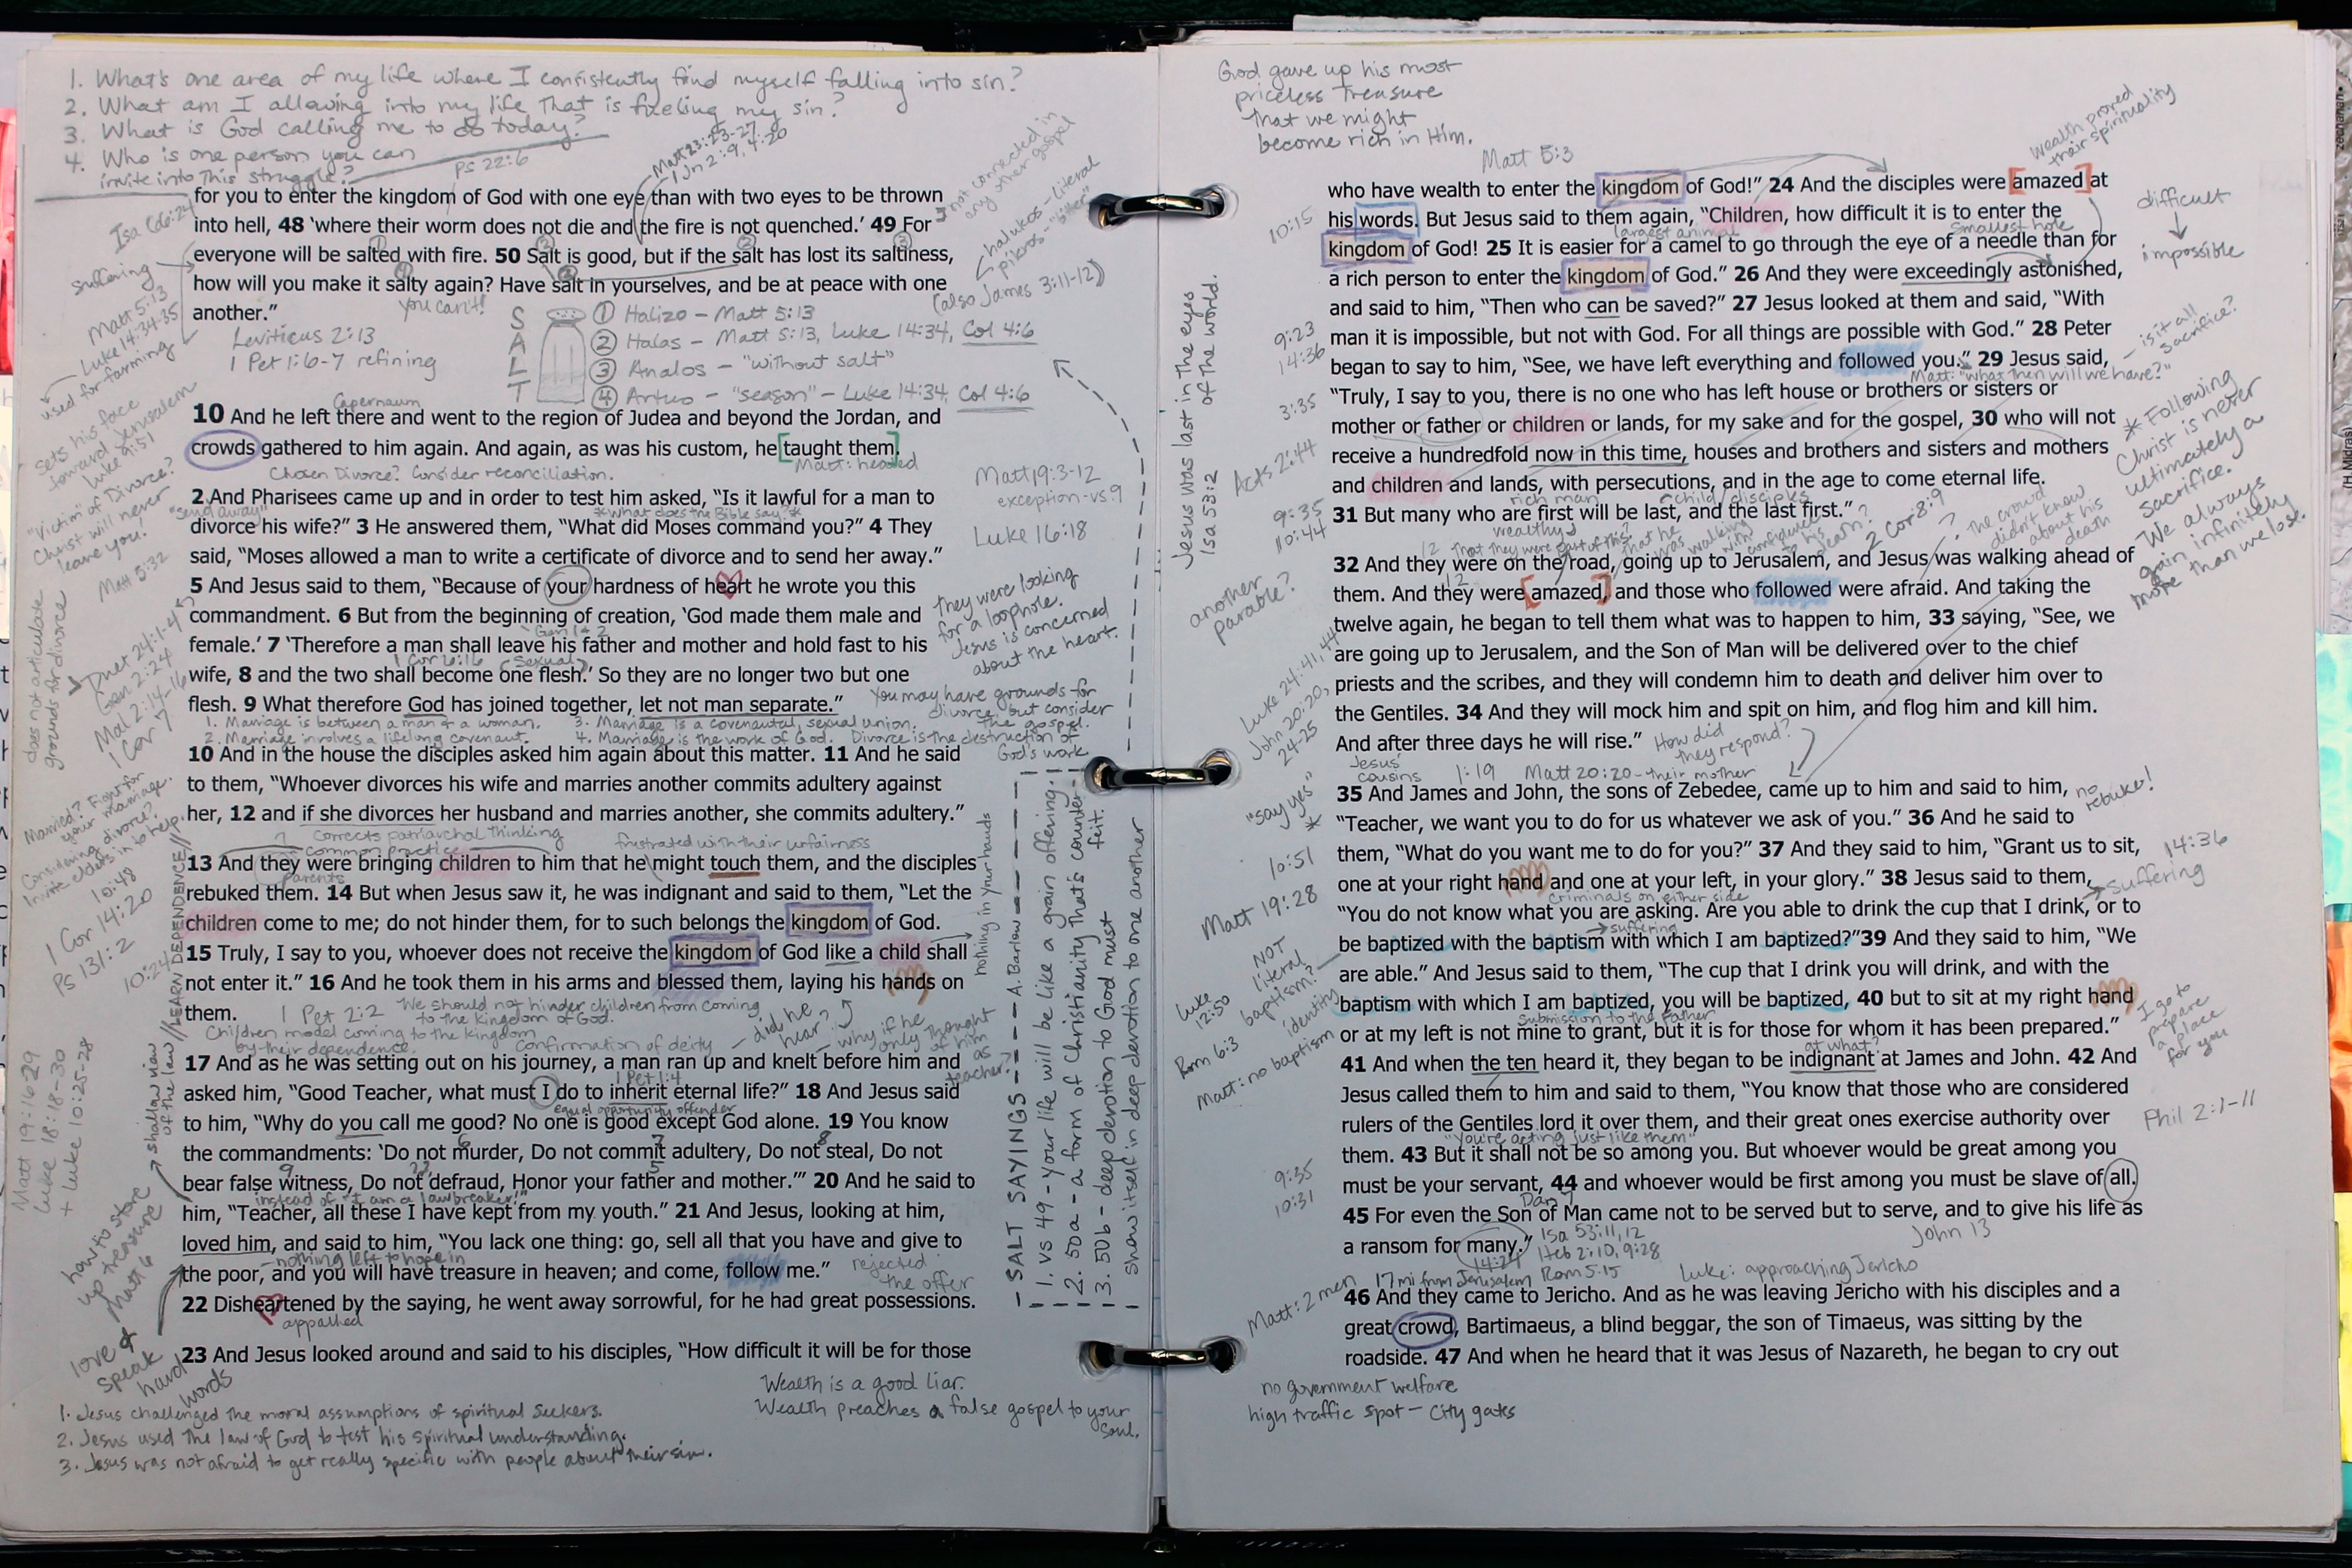 1. What's one area of my life where I consistently find myself falling into sin?
2. What am I allowing into my life that is fueling my sin?
3. What is God calling me to do today?
4. Who is one person you can
invite into this struggle?
Ps 22:6
Matt 23:23-27
1 Jn 2:9, 4:20
not connected in
any other gospel
for you to enter the kingdom of God with one eye than with two eyes to be thrown
Isa 66:24
into hell, 48 ‘where their worm does not die and the fire is not quenched.’ 49 For
halukos - literal
pikros - "bitter"
everyone will be salted with fire. 50 Salt is good, but if the salt has lost its saltiness,
suffering
how will you make it salty again? Have salt in yourselves, and be at peace with one
you can't!
(also James 3:11-12)
another.”
Matt 5:13
Luke 14:34-35
used for farming
Leviticus 2:13
1 Pet 1:6-7 refining
SALT
1 Halizo - Matt 5:13
2 Halas - Matt 5:13, Luke 14:34, Col 4:6
3 Analos - "without salt"
4 Artuo - "season" - Luke 14:34, Col 4:6
Capernaum
10 And he left there and went to the region of Judea and beyond the Jordan, and
sets his face
toward Jerusalem
Luke 9:51
crowds gathered to him again. And again, as was his custom, he taught them.
Matt: healed
Chosen Divorce? Consider reconciliation.
Matt 19:3-12
exception - vs 9
Luke 16:18
"Victim" of Divorce?
Christ will never
leave you!
Matt 5:32
2 And Pharisees came up and in order to test him asked, “Is it lawful for a man to
"send away"
*what does the Bible say?*
divorce his wife?” 3 He answered them, “What did Moses command you?” 4 They
said, “Moses allowed a man to write a certificate of divorce and to send her away.”
5 And Jesus said to them, “Because of your hardness of heart he wrote you this
commandment. 6 But from the beginning of creation, ‘God made them male and
Gen 1 & 2
female.’ 7 ‘Therefore a man shall leave his father and mother and hold fast to his
1 Cor 6:16 (sexual)
wife, 8 and the two shall become one flesh.’ So they are no longer two but one
flesh. 9 What therefore God has joined together, let not man separate.”
They were looking
for a loophole.
Jesus is concerned
about the heart.
You may have grounds for
divorce, but consider
the gospel.
does not articulate
grounds for divorce
Duet 24:1-4
Gen 2:24
Mal 2:14-16
1 Cor 7
1. Marriage is between a man & a woman. 3. Marriage is a covenantal, sexual union.
2. Marriage involves a lifelong covenant. 4. Marriage is the work of God. Divorce is the destruction of
God's work
10 And in the house the disciples asked him again about this matter. 11 And he said
to them, “Whoever divorces his wife and marries another commits adultery against
her, 12 and if she divorces her husband and marries another, she commits adultery.”
Married? Fight for
your marriage.
Considering divorce?
Invite elders in to help.
corrects patriarchal thinking
common practice
frustrated with their unfairness
13 And they were bringing children to him that he might touch them, and the disciples
parents
rebuked them. 14 But when Jesus saw it, he was indignant and said to them, “Let the
children come to me; do not hinder them, for to such belongs the kingdom of God.
15 Truly, I say to you, whoever does not receive the kingdom of God like a child shall
not enter it.” 16 And he took them in his arms and blessed them, laying his hands on
them.
nothing in your hands
10:48
1 Cor 14:20
Ps 131:2
10:24
//LEARN DEPENDENCE//
1 Pet 2:2
We should not hinder children from coming
to the kingdom of God.
Children model coming to the kingdom
by their dependence.
confirmation of deity
did he
hear?
why if he
only thought
of him
as
teacher?
17 And as he was setting out on his journey, a man ran up and knelt before him and
1 Pet 1:4
asked him, “Good Teacher, what must I do to inherit eternal life?” 18 And Jesus said
equal opportunity offender
to him, “Why do you call me good? No one is good except God alone. 19 You know
6 7 8
the commandments: ‘Do not murder, Do not commit adultery, Do not steal, Do not
9 ?? 5
bear false witness, Do not defraud, Honor your father and mother.’” 20 And he said to
instead of "I am a lawbreaker!"
him, “Teacher, all these I have kept from my youth.” 21 And Jesus, looking at him,
loved him, and said to him, “You lack one thing: go, sell all that you have and give to
nothing left to hope in
the poor, and you will have treasure in heaven; and come, follow me.”
rejected
the offer
22 Disheartened by the saying, he went away sorrowful, for he had great possessions.
appalled
23 And Jesus looked around and said to his disciples, “How difficult it will be for those
Matt 19:16-29
Luke 18:18-30
+ Luke 10:25-28
shallow view
of the law
how to store
up treasure
Matt 6
love &
speak
hard
words
Wealth is a good liar.
Wealth preaches a false gospel to your
soul.
1. Jesus challenged the moral assumptions of spiritual seekers.
2. Jesus used the law of God to test his spiritual understanding.
3. Jesus was not afraid to get really specific with people about their sin.
SALT SAYINGS - A. Barlow
1. vs 49 - your life will be like a grain offering.
2. 50a - a form of Christianity that's counter-
feit.
3. 50b - deep devotion to God must
show itself in deep devotion to one another
God gave up his most
priceless treasure
that we might
become rich in Him.
Matt 5:3
wealth proved
their spirituality
who have wealth to enter the kingdom of God!” 24 And the disciples were amazed at
10:15
his words. But Jesus said to them again, “Children, how difficult it is to enter the
largest animal
smallest hole
difficult
impossible
kingdom of God! 25 It is easier for a camel to go through the eye of a needle than for
a rich person to enter the kingdom of God.” 26 And they were exceedingly astonished,
and said to him, “Then who can be saved?” 27 Jesus looked at them and said, “With
9:23
14:36
man it is impossible, but not with God. For all things are possible with God.” 28 Peter
began to say to him, “See, we have left everything and followed you.” 29 Jesus said,
is it all
sacrifice?
Matt: "what then will we have?"
“Truly, I say to you, there is no one who has left house or brothers or sisters or
3:35
mother or father or children or lands, for my sake and for the gospel, 30 who will not
receive a hundredfold now in this time, houses and brothers and sisters and mothers
Acts 2:44
and children and lands, with persecutions, and in the age to come eternal life.
rich man
child/disciples
9:35
10:44
31 But many who are first will be last, and the last first.”
wealthy
* Following
Christ is never
ultimately a
sacrifice.
We always
gain infinitely
more than we lose.
Jesus was last in the eyes
of the world.
Isa 53:2
2 Cor 8:9
The crowd
didn't know
about his
death
32 And they were on the road, going up to Jerusalem, and Jesus was walking ahead of
12
them. And they were amazed, and those who followed were afraid. And taking the
twelve again, he began to tell them what was to happen to him, 33 saying, “See, we
are going up to Jerusalem, and the Son of Man will be delivered over to the chief
priests and the scribes, and they will condemn him to death and deliver him over to
the Gentiles. 34 And they will mock him and spit on him, and flog him and kill him.
And after three days he will rise.”
another
parable?
Luke 24:41, 44
John 20:20,
24-25
How did
they respond?
Jesus'
cousins
1:19
Matt 20:20 - their mother
35 And James and John, the sons of Zebedee, came up to him and said to him,
no
rebuke!
"say yes"
*
“Teacher, we want you to do for us whatever we ask of you.” 36 And he said to
10:51
them, “What do you want me to do for you?” 37 And they said to him, “Grant us to sit,
14:36
one at your right hand and one at your left, in your glory.” 38 Jesus said to them,
criminals on either side
suffering
Matt 19:28
“You do not know what you are asking. Are you able to drink the cup that I drink, or to
suffering
be baptized with the baptism with which I am baptized?” 39 And they said to him, “We
are able.” And Jesus said to them, “The cup that I drink you will drink, and with the
baptism with which I am baptized, you will be baptized, 40 but to sit at my right hand
submission to the Father
or at my left is not mine to grant, but it is for those for whom it has been prepared.”
NOT
literal
baptism?
identity
Luke
12:50
Rom 6:3
Matt: no baptism
I go to
prepare
a place
for you
at what?
41 And when the ten heard it, they began to be indignant at James and John. 42 And
Jesus called them to him and said to them, “You know that those who are considered
rulers of the Gentiles lord it over them, and their great ones exercise authority over
Phil 2:1-11
"You're acting just like them"
them. 43 But it shall not be so among you. But whoever would be great among you
9:35
10:31
must be your servant, 44 and whoever would be first among you must be slave of all.
Dan 7
45 For even the Son of Man came not to be served but to serve, and to give his life as
a ransom for many.”
14:24
Isa 53:11,12
Heb 2:10, 9:28
Rom 5:15
John 13
Matt: 2 men
17 mi from Jerusalem
Luke: approaching Jericho
46 And they came to Jericho. And as he was leaving Jericho with his disciples and a
great crowd, Bartimaeus, a blind beggar, the son of Timaeus, was sitting by the
roadside. 47 And when he heard that it was Jesus of Nazareth, he began to cry out
no government welfare
high traffic spot - City gates